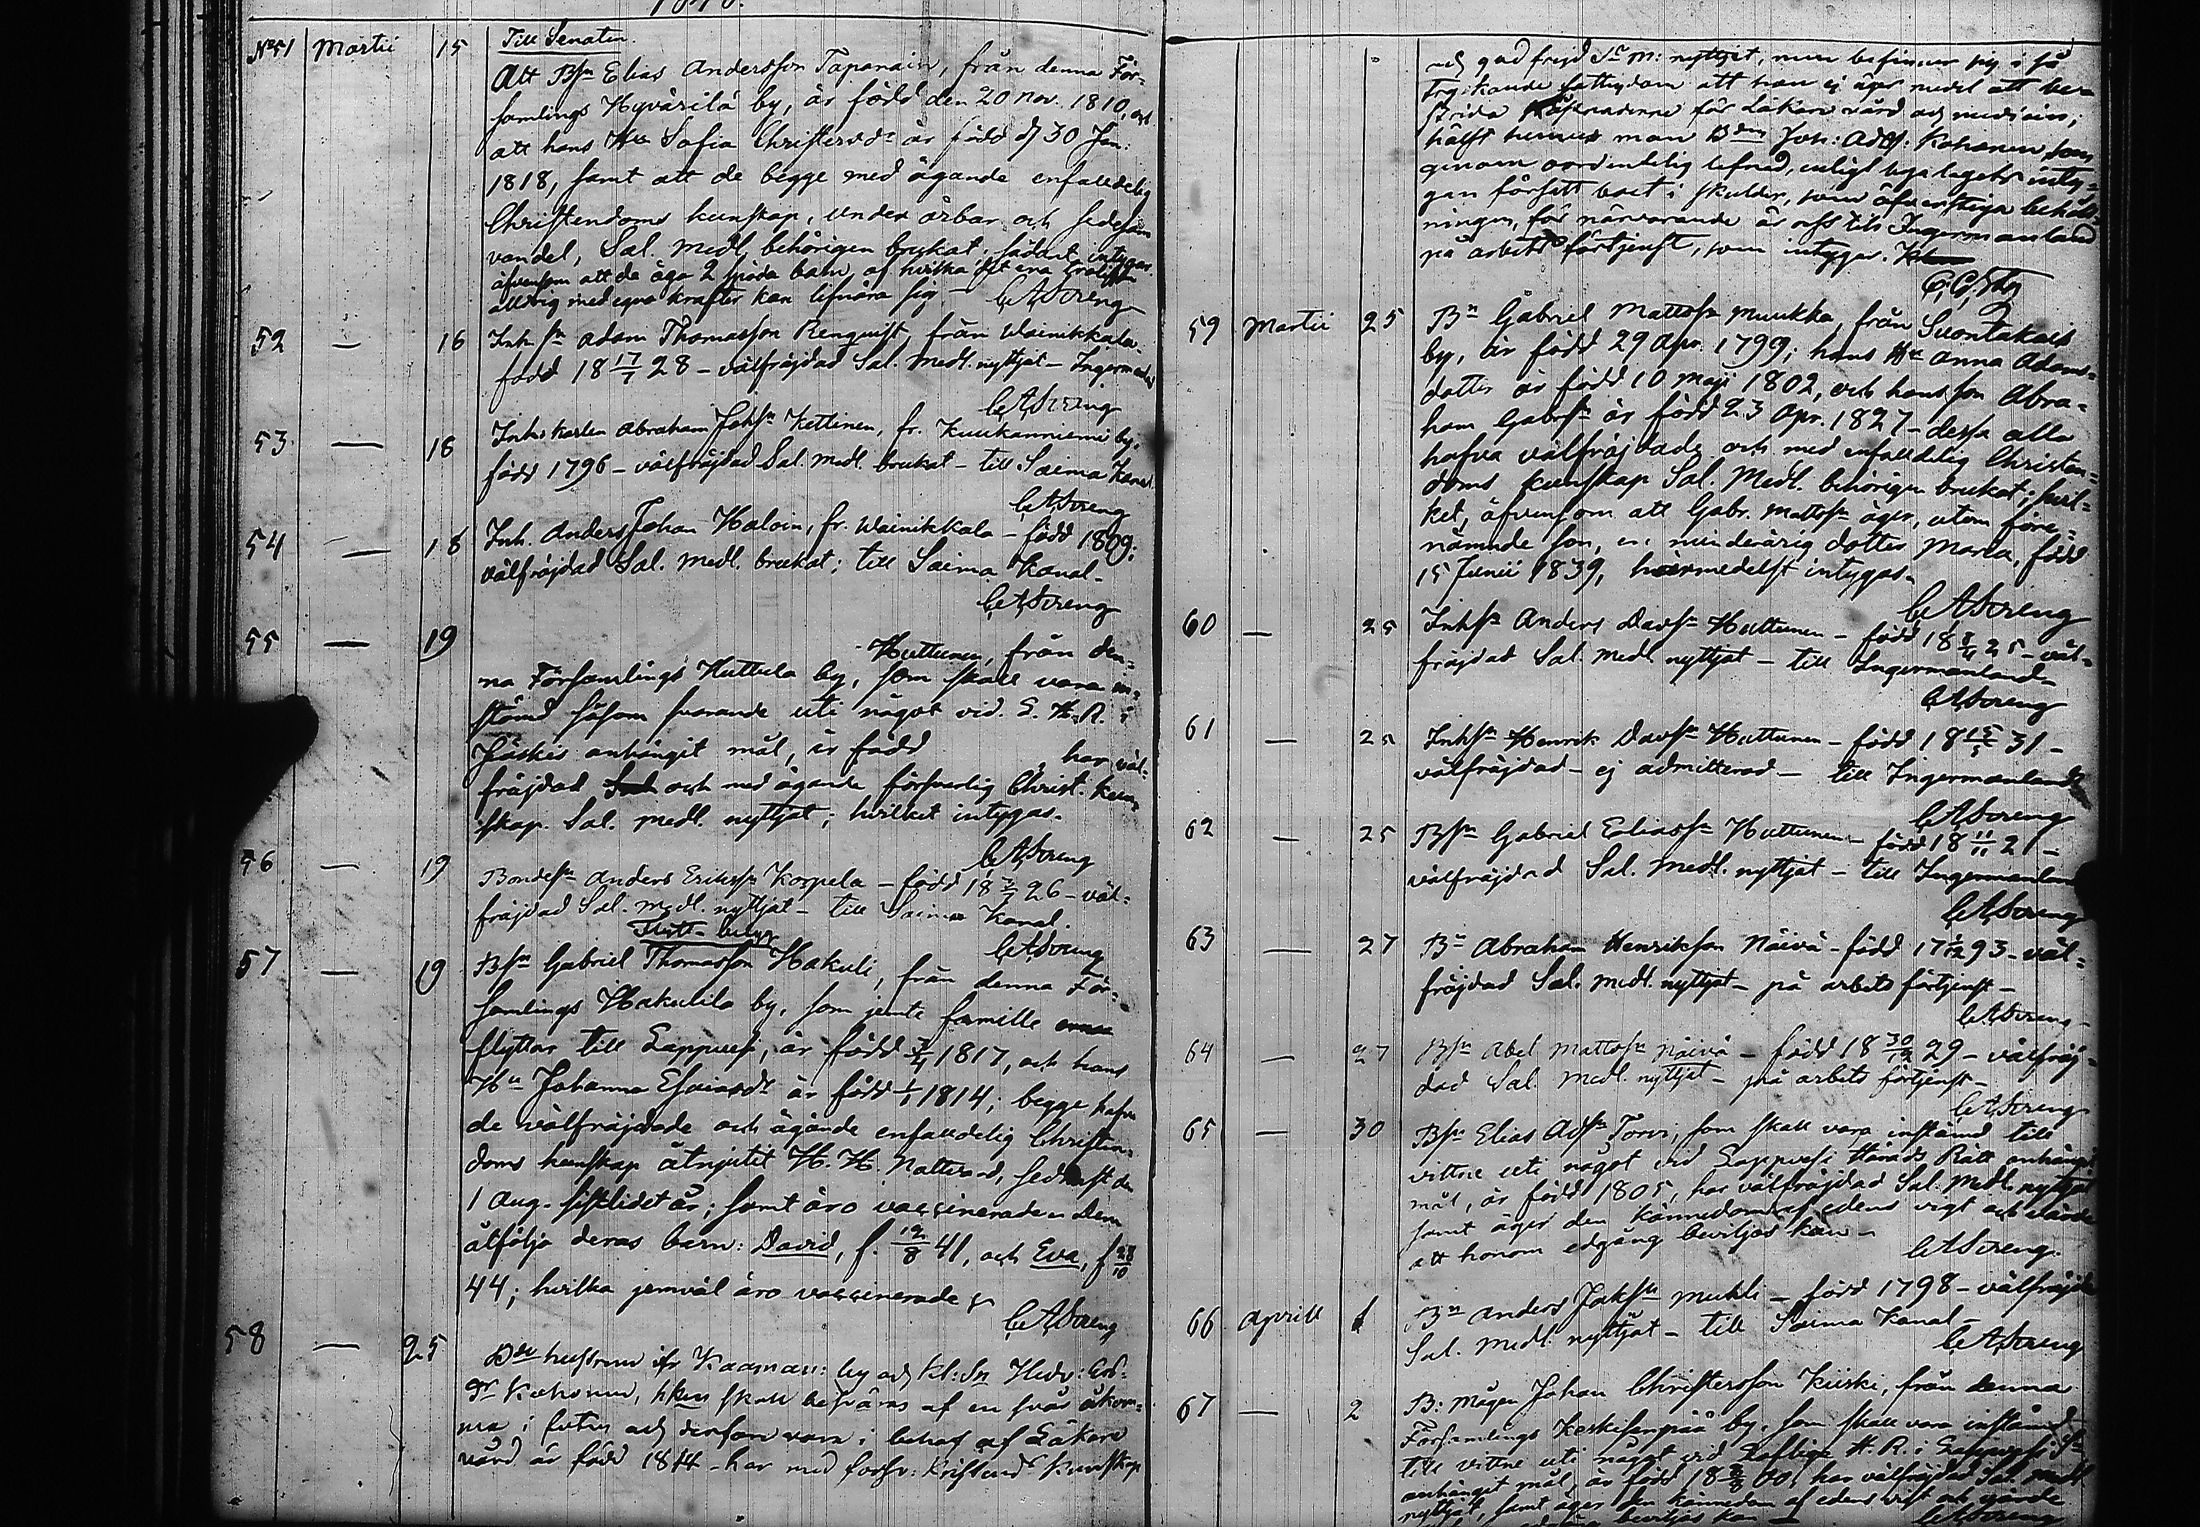 No 51 Martii 15 Till Senaten.
Att Bsn Elias Andersson Tapanain, från denna För-
samlings Hyvärilä by, är född den 20 Nov. 1810, och
att hans Hu Sofia Christersdr är född d 30 Jan:
1818, samt att de begge med ägande enfaldelig
Christendoms kunskap, under ärbar och sedesam
vandel, Sal. Medl. behörigen brukat; sådant intygas.
äfvensom att de äga 2 späda barn, af hvilka det ena
aldrig med egna krafter kan lifnära sig. CAStreng
52 — 16 Inh. sn Adam Thomasson Renquist, från Wainikkala
född 18 17/7 28 – välfräjdad Sal. Medl. nyttjat – Ingermanld
CAStreng
53 — 18 Inhs karlen Abraham Johsn Kettinen, fr. Kuukanniemi by,
född 1796 – välfräjdad Sal. Medl. brukat – till Saima Kanal.
CAStreng
54 — 18 Inh. Anders Johan Haloin, fr. Wainikkala – född 1809;
välfräjdad Sal. Medl. brukat; till Saima Kanal –
CAStreng
55 — 19 Huttunen, från den-
na Församlings Huttula by, som skall vara in-
stämd såsom svarande uti något vid. E. H. R. i
Jäskis anhängit mål, är född har väl-
fräjdad och med ägande försvarlig Christ. kun-
skap. Sal. Medl. nyttjat; hvilket intygas.
CAStreng
56 — 19 Bondesn Anders Erikssn Korpela – född 18 26 – väl-
fräjdad Sal. Medl. nyttjat – till Saima Kanal.
CAStreng
Flytt-betyg
57 — 19 Bsn Gabriel Thomasson Hakuli, från denna För-
samlings Hakulila by, som jemte famille
flyttar till Lappvesi, är född 1817, och hans
Hu Johanna Esaiasdr är född 1/1 1814; begge hafva
de välfräjdade och ägande enfaldelig Christen-
doms kunskap åtnjutit H. H. Nattvard, sednast den
1 Aug. sistlidet år; samt äro vaccinerade. Dem
åtfölja deras barn: David, f. 12/8 41, och Eva, f 28/10
44; hvilka jemväl äro vaccinerade
CAStreng
58 — 25 hustrun ifr by och Kl: Hedv: Ad:
dr Kohonen, hken skall besväras af en svår åkom-
ma i foten och derföre vara i behof af Läkare
vård är född 1814 – har med försv: Kristend Kunskap
och god frejd Sn M: nyttjat, men befinner sig i så
tryckande fattigdom att hon ej äger medel att be-
strida kostnaderne för Läkare vård och medicin;
hälst hennes man Joh: Adolf: Kohonen, som
genom oordentelig lefnad, enligt inty-
gan försatt boet i skulder, som öfverstiga behåll-
ningen, för närvarande är oss till Ingermanland
på arbets förtjenst, som intygas.
59 Martii 25 Bn Gabriel Mattssn Muukka, från Suontakais
by, är född 29 Apr. 1799; hans Hu Anna Adams-
dotter är född 10 Maji 1802, och hans son Abra-
ham Gabrssn är född 23 Apr. 1827 – dessa alla
hafva välfräjdade och med enfaldelig Christen-
doms kunskap Sal. Medl. behörigen brukat; hvil-
ket, äfvensom att Gabr. Mattssn äger, utom före-
nämnde son, en minderårig dotter Maria, född
15 Junii 1839, härmedelst intygas.
CAStreng
60 — 25 Inhsn Anders Davsn Huttunen – född 18 25 – väl-
fräjdad Sal. Medl nyttjat – till Ingermanland –
CAStreng
61 — 25 Inhsn Henrik Davsn Huttunen – född 18 31 –
välfräjdad – ej admitterad – till Ingermanland
CAStreng
62 — 25 Bsn Gabriel Eliassn Huttunen – född 18 11/11 21 –
välfräjdad Sal. Medl. nyttjat – till Ingermanland
CAStreng
63 — 27 Bn Abraham Henrikson Näivä – född 17 93 – väl-
fräjdad Sal. Medl. nyttjat – på arbets förtjenst –
CAStreng
64 — 27 Bsn Abel Mattssn Näivä – född 18 30/12 29 – välfräj-
dad Sal. Medl. nyttjat – på arbets förtjenst –
CAStreng
65 — 30 Bsn Elias Adsn Torvi, som skall vara instämd till
vittne uti något vid Lappvesi Härads Rätt anhängit
mål, är född 1805, har välfräjdad Sal. Medl. nyttjat
samt äger den kännedom af edens vigt och värde
att honom edgång beviljas kan –
CAStreng
66 Aprill 1 Bn Anders Jaksn Mukli – född 1798 – välfräjdad
Sal. Medl. nyttjat – till Saima Kanal –
CAStreng
67 — 2 B: Mågen Johan Christersson Kiiski, från denna
Församlings Keskisenpää by, som skall vara instämd
till vittne uti något vid Lofliga H. R. i Lappvesi
anhängit mål, är född 18 00, har välfräjdad Sal. Medl
nyttjat, samt äger den kännedom af edens vigt och värde
beviljas kan CAStreng